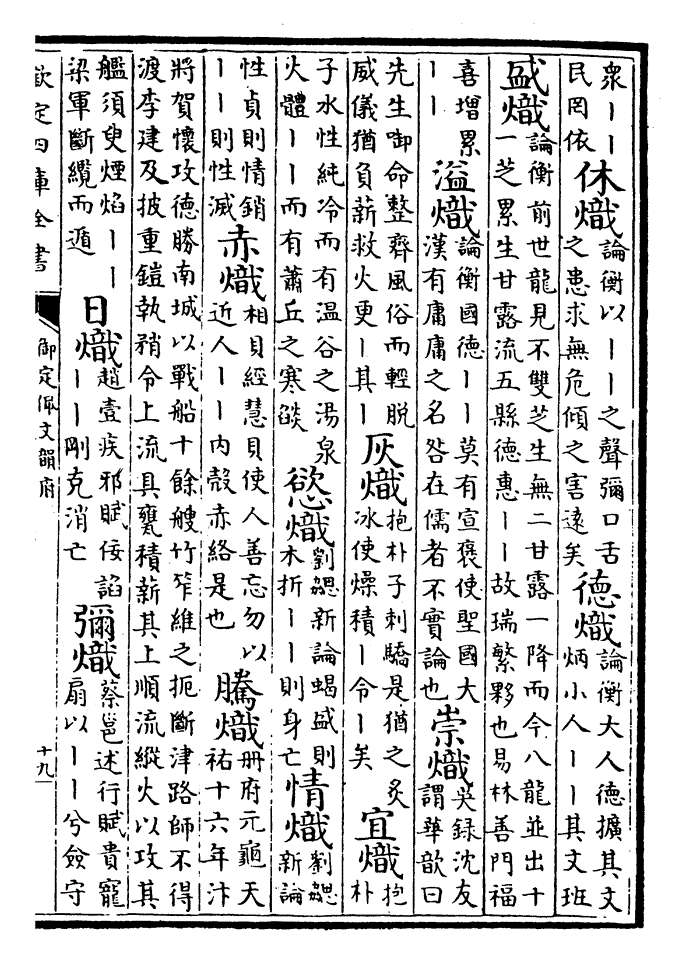 衆丨丨
民罔依
休熾
論衡以丨丨之聲彌口舌
之患求無危傾之害遠矣
德熾
論衡大人德擴其文
炳小人丨丨其文班
盛熾
論衡前世龍見不雙芝生無二甘露一降而今八龍並出十
一芝累生甘露流五縣德惠丨丨故瑞繁夥也易林善門福
喜增累
丨丨
溢熾
論衡國德丨丨莫有宣褒使聖國大
漢有庸庸之名咎在儒者不實論也
崇熾
英錄沈友
謂華歆曰
先生御命整齊風俗而輕脫
威儀猶負薪救火更丨其丨
灰熾
抱朴子刺驕是猶之炙
冰使燥積丨令丨矣
宜熾
抱
朴
子水性純冷而有温谷之湯泉
火體丨丨而有蕭丘之寒燄
慾熾
劉勰新論蝎盛則
木折丨丨則身亡
情熾
劉勰
新論
性貞則情銷
丨丨則性滅
赤熾
相貝經慧貝使人善忘勿以
近人丨丨内殼赤絡是也
騰熾
册府元龜天
祐十六年汴
將賀懷攻德勝南城以戰船十餘艘竹笮維之扼斷津路師不得
渡李建及披重鎧執矟令上流具甕積薪其上順流縱火以攻其
艦須臾煙焰丨丨
梁軍斷纜而遁
日熾
趙壹疾邪賦佞諂
丨丨剛克消亡
彌熾
蔡邕述行賦貴寵
扇以丨丨兮僉守
欽定四庫全書
御定佩文韻府
十九